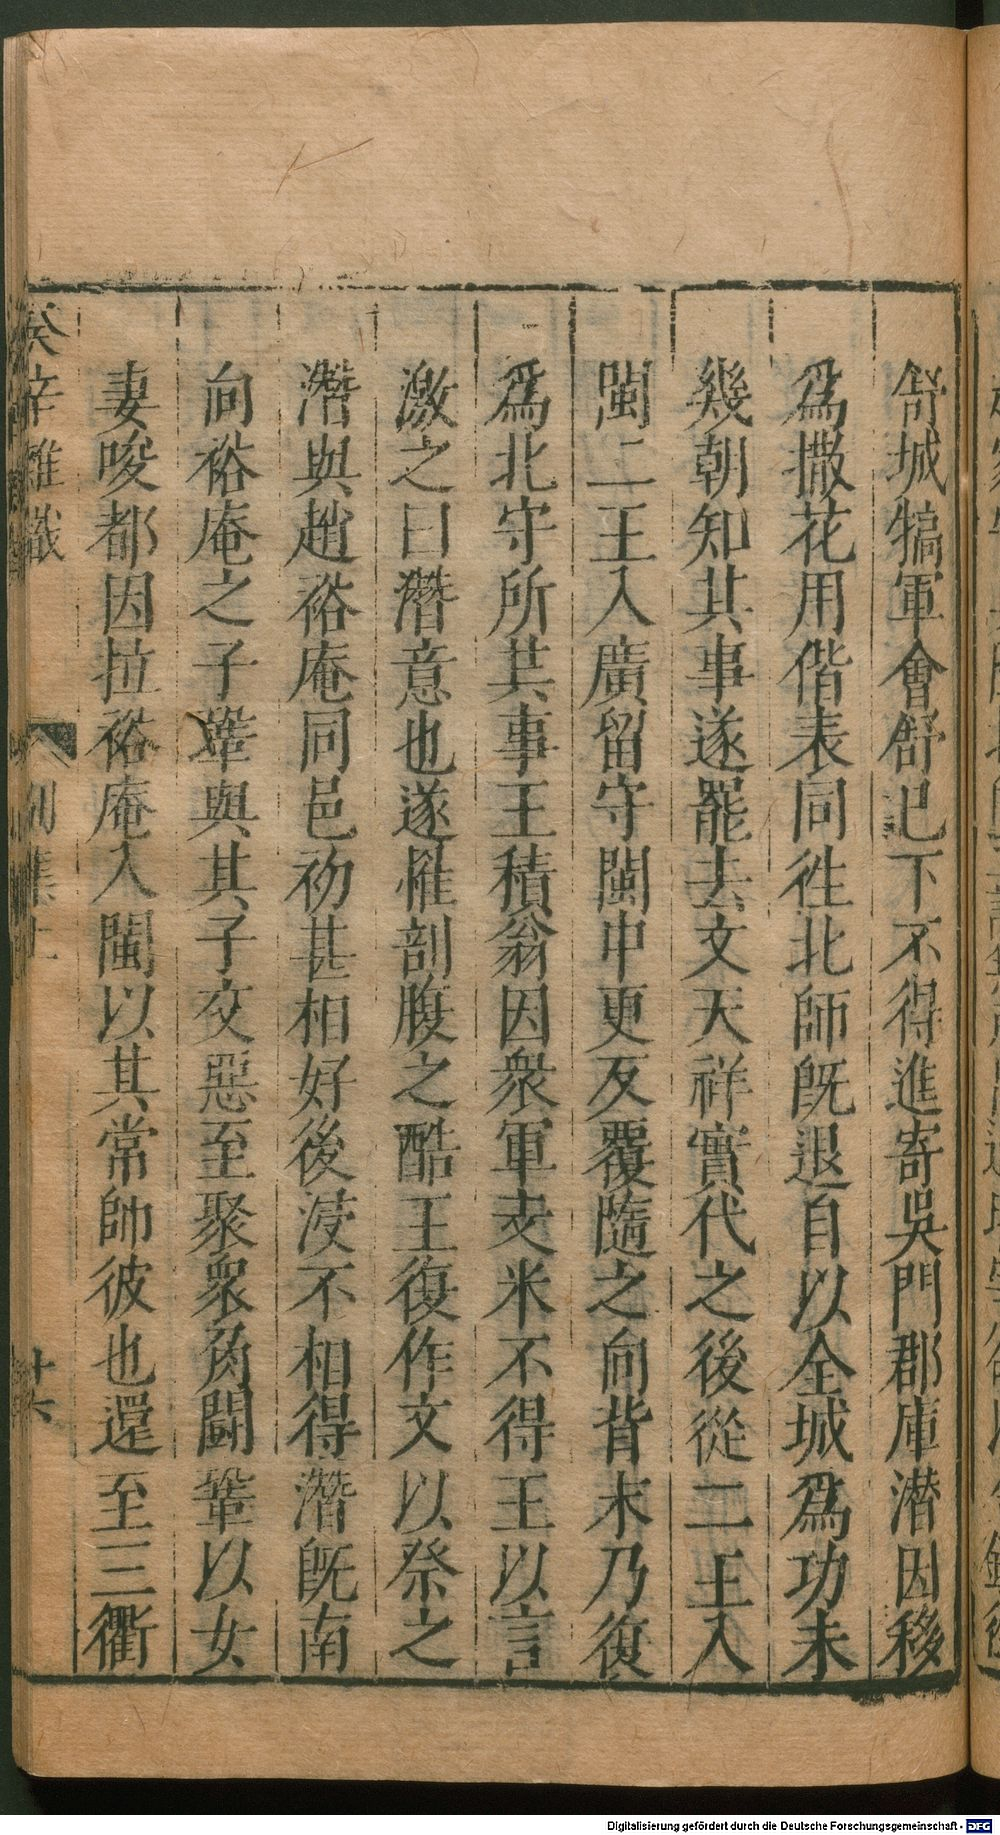 舒城犒軍會舒已下不得進寄吳門郡庫潜因移
爲撒花用偕表同徃北師旣退自以全城爲功未
幾朝知其事遂罷去文天祥實代之後從二王入
閩二王入廣留守閩中更反覆隨之向背末乃復
爲北守所其事王積翁因衆軍支米不得王以言
激之曰潛意也遂惟剖腹之酷王復作文以祭之
潛與趙裕庵同邑初甚相好後浸不相得潛旣南
向裕庵之子鞏與其子交惡至聚衆角鬪鞏以女
妻唆都因拉裕庵入閩以其常帥彼也還至三衢
癸辛雜識 别集上 廿六
Digitalisierung gefördert durch die Deutsche Forschungsgemeinschaft - DFG